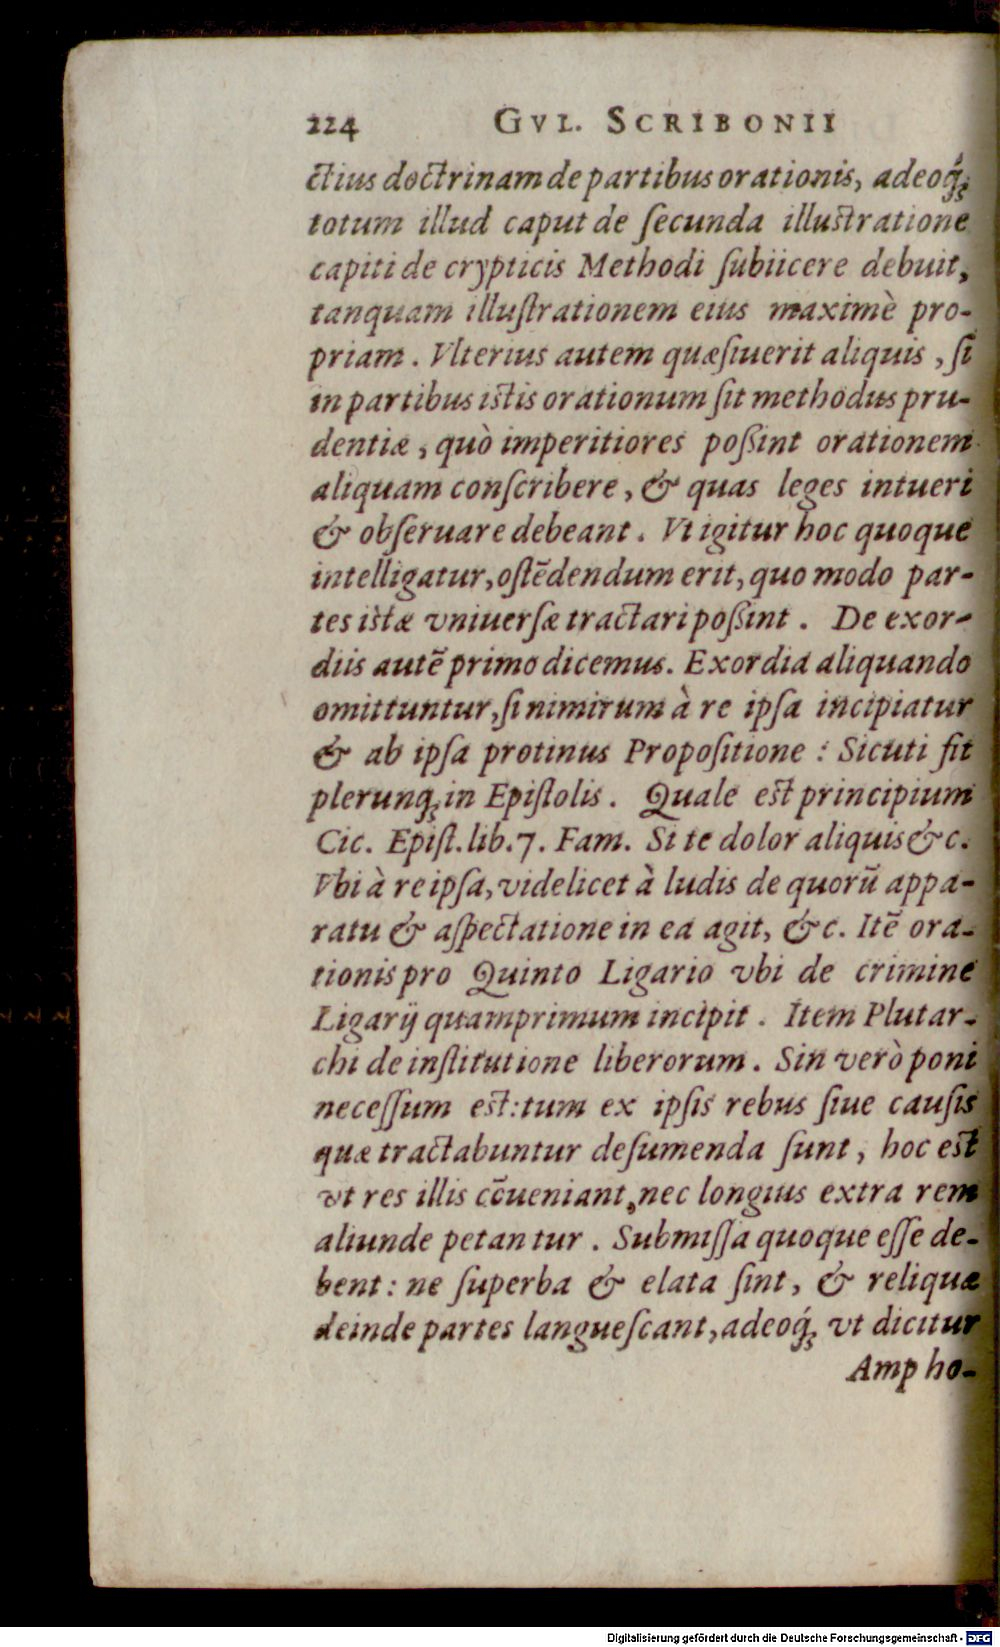 224 GVL. SCRIBONII
ctius doctrinam de partibus orationis, adeoq́;
totum illud caput de ſecunda illuſtratione
capiti de crypticis Methodi ſubiicere debuit,
tanquam illuſtrationem eius maximè pro-
priam. Vlterius autem quæſiuerit aliquis, ſi
in partibus iſtis orationum ſit methodus pru-
dentiæ, quò imperitiores poßint orationem
aliquam conſcribere, & quas leges intueri
& obſeruare debeant. Vt igitur hoc quoque
intelligatur, oſtẽdendum erit, quo modo par-
tes iſtæ vniuerſæ tractari poßint. De exor-
diis autẽ primo dicemus. Exordia aliquando
omittuntur, ſi nimirum à re ipſa incipiatur
& ab ipſa protinus Propoſitione: Sicuti fit
plerunq; in Epiſtolis. Quale eſt principium
Cic. Epiſt. lib. 7. Fam. Si te dolor aliquis &c.
Vbi à re ipſa, videlicet à ludis de quorũ appa-
ratu & aſpectatione in ea agit, &c. Itẽ ora-
tionis pro Quinto Ligario vbi de crimine
Ligarij quamprimum incipit. Item Plutar-
chi de inſtitutione liberorum. Sin verò poni
neceſſum eſt: tum ex ipſis rebus ſiue cauſis
quæ tractabuntur deſumenda ſunt, hoc eſt
vt res illis cõueniant, nec longius extra rem
aliunde petantur. Submiſſa quoque eſſe de-
bent: ne ſuperba & elata ſint, & reliquæ
deinde partes langueſcant, adeoq́; vt dicitur
Ampho-
Digitalisierung gefördert durch die Deutsche Forschungsgemeinschaft - DFG